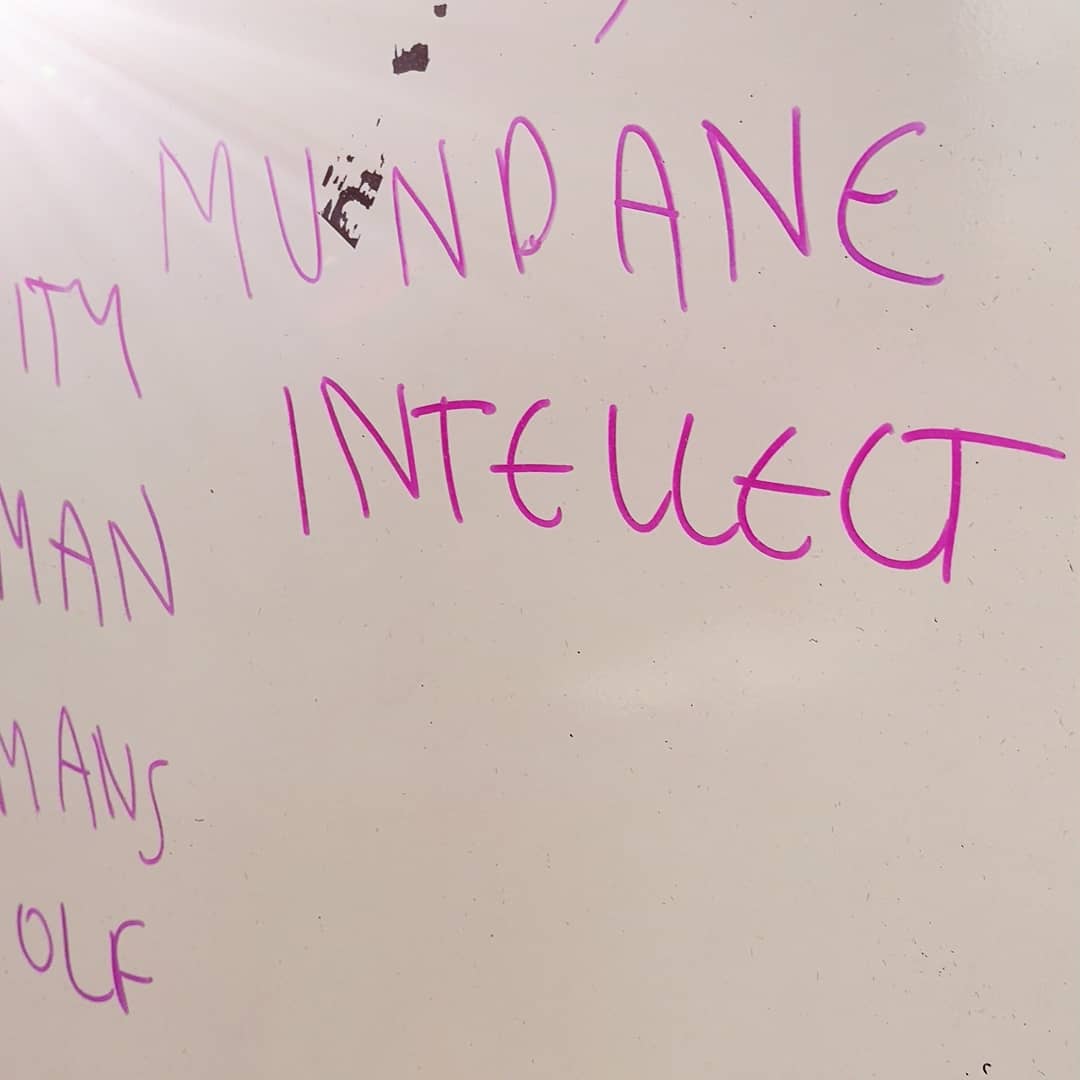 MUNDANE
ITY
INTELLECT
MAN
MANS
OLF